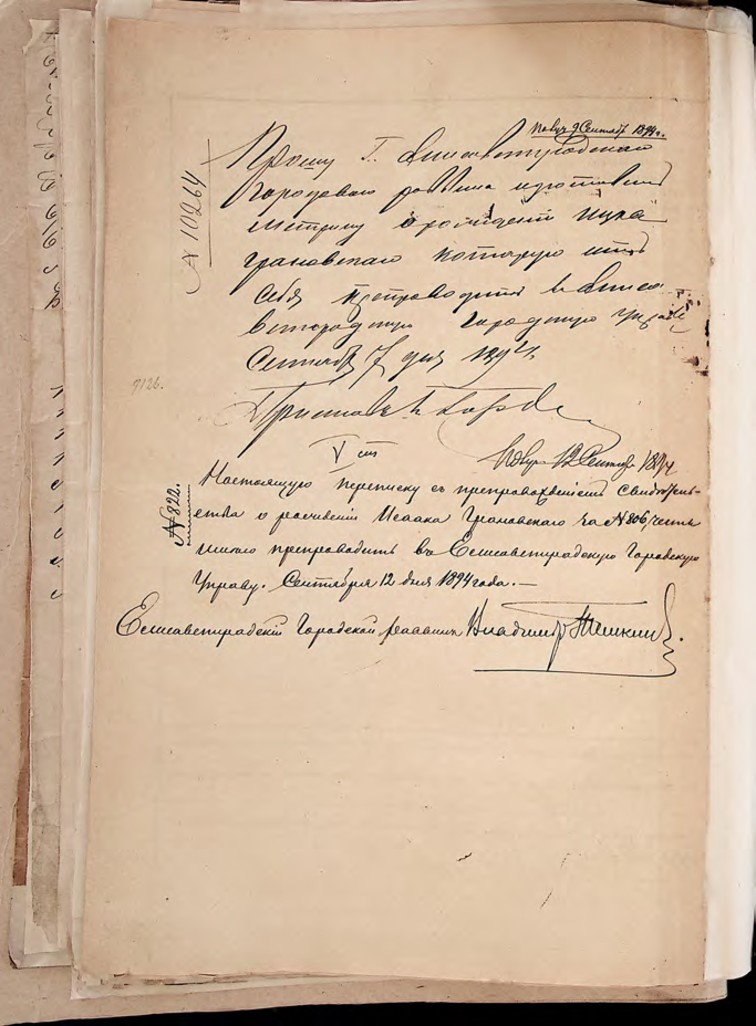 Получ. 9 Сентябр 1894 г.
№ 10264
Прошу Г. Елисаветградскаго
Городового раввина изготовить
метрику о рождении Ицка
Грановскаго которую отъ
себя препроводить в Елиса
ветградскую городскую Управу
Сентября 7 дня 1894.
9126.
Приставъ
V
Получ. 12 Сентября 1894
№ 822.
Настоящую переписку съ препровожденіемъ свидѣтель-
ства о рожденіи Исаака Грановскаго за № 806, честь
имѣю препроводить въ Елисаветградскую Городскую
Управу. Сентября 12 дня 1894 года. —
Елисаветградскій Городской Раввинъ Владимір Тёмкин.